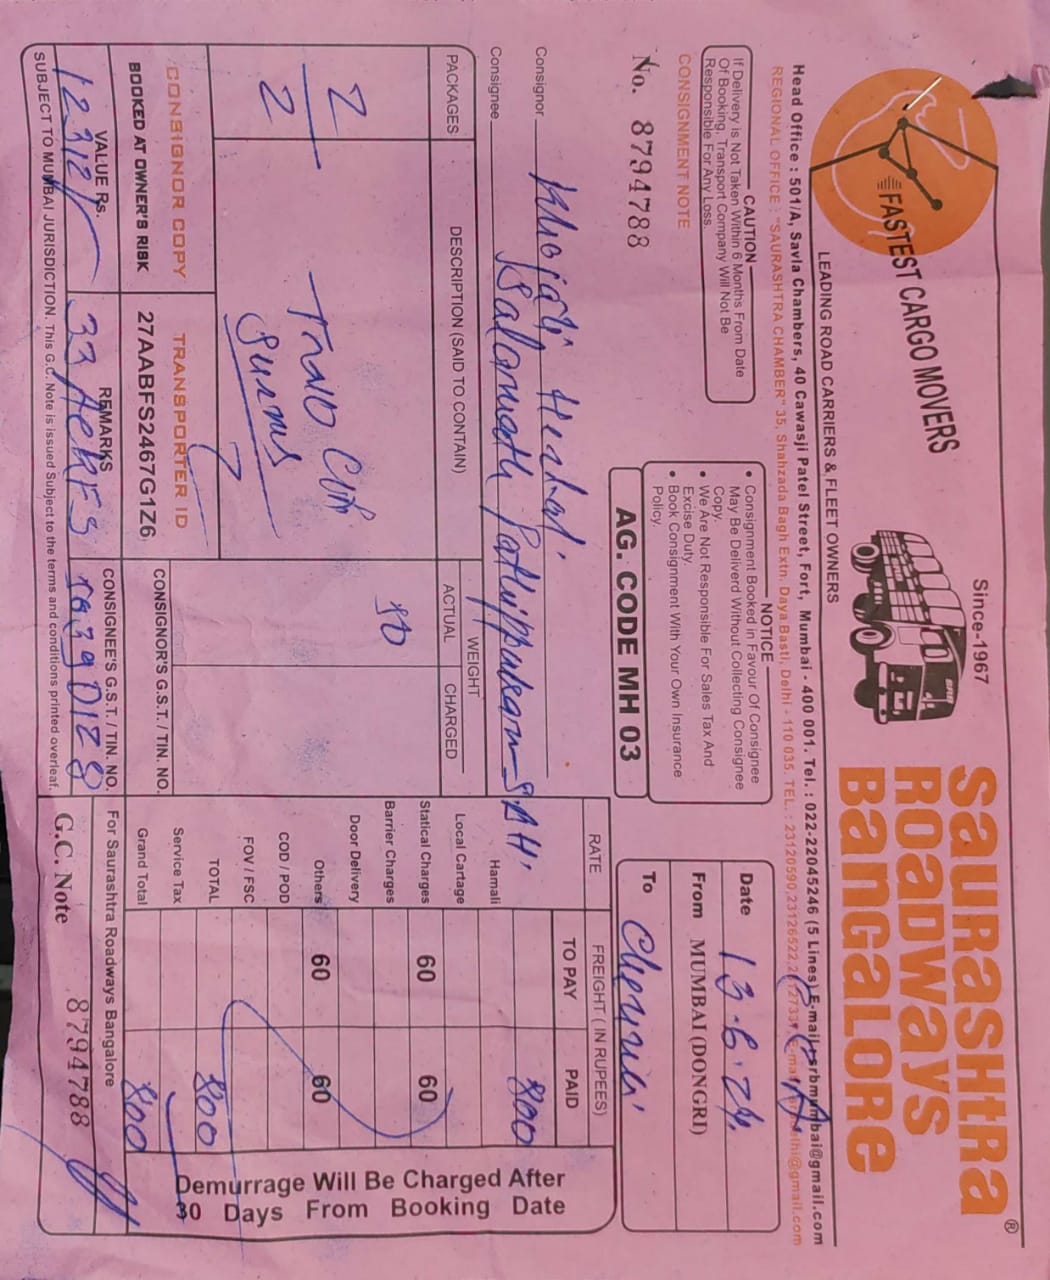 FASTEST CARGO MOVERS
Since-1967
SAURASHTRA ®
ROADWAYS
BANGALORE
LEADING ROAD CARRIERS & FLEET OWNERS
Head Office : 501/A, Savla Chambers, 40 Cawasji Patel Street, Fort, Mumbai - 400 001. Tel. : 022-22045246 (5 Lines) E-mail : srbmumbai@gmail.com
REGIONAL OFFICE : "SAURASHTRA CHAMBER" 35, Shahzada Bagh Extn. Daya Basti, Delhi - 110 035. TEL. : 23120590,23126522
CAUTION
If Delivery is Not Taken Within 6 Months From Date
Of Booking, Transport Company Will Not Be
Responsible For Any Loss.
CONSIGNMENT NOTE
No. 8794788
NOTICE
• Consignment Booked in Favour Of Consignee
May Be Deliverd Without Collecting Consignee
Copy.
• We Are Not Responsible For Sales Tax And
Excise Duty
• Book Consignment With Your Own Insurance
Policy.
AG. CODE MH 03
Date 13.6.24
From MUMBAI (DONGRI)
To
Consignor
Consignee
PACKAGES
DESCRIPTION (SAID TO CONTAIN)
WEIGHT
ACTUAL
CHARGED
RATE
FREIGHT ( IN RUPEES)
TO PAY
PAID
2
2
80
Hamali 800
Local Cartage
Statical Charges 60 60
Barrier Charges
Door Delivery
Others 60 60
COD / POD
FOV / FSC
TOTAL 800
Service Tax
Grand Total 800
Demurrage Will Be Charged After
30 Days From Booking Date
CONSIGNOR COPY
TRANSPORTER ID
BOOKED AT OWNER'S RISK
27AABFS2467G1Z6
CONSIGNOR'S G.S.T. / TIN. NO.
VALUE Rs.
REMARKS
CONSIGNEE'S G.S.T. / TIN. NO.
12312/-
For Saurashtra Roadways Bangalore
SUBJECT TO MUMBAI JURISDICTION. This G.C. Note is issued Subject to the terms and conditions printed overleaf.
G.C. Note 8794788